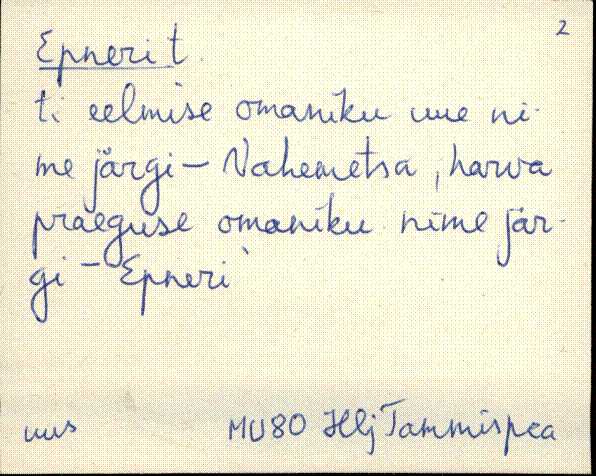 2
Epneri t.
t. eelmise omaniku uue ni-
me järgi - Vahemetsa, harva
praeguse omaniku nime jär-
gi - Epneri`
uus MU80 Hlj Tammispea